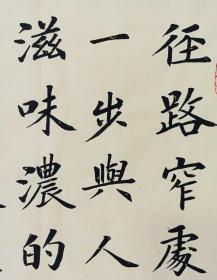 径路窄處
一步與人
滋味濃的